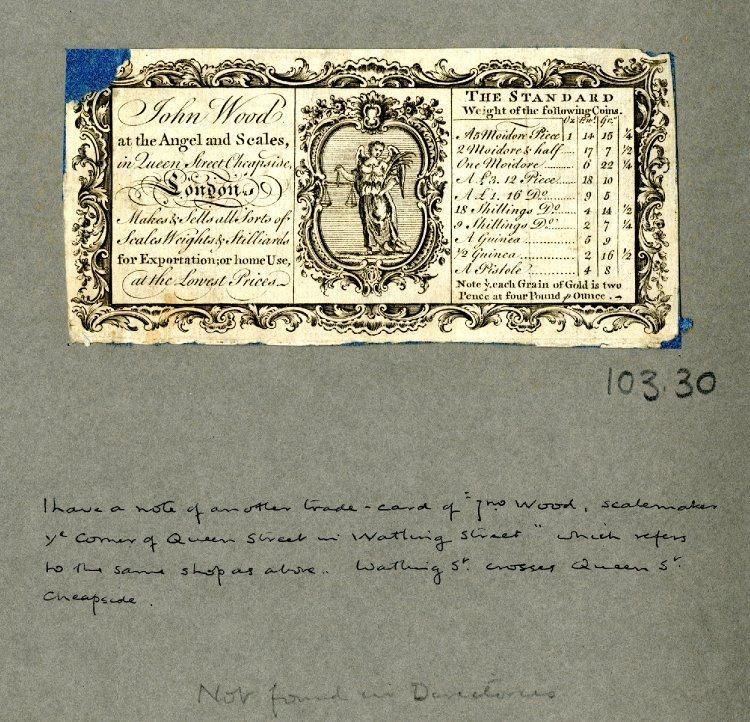 John Wood
at the Angel and Scales,
in Queen Street Cheapside,
London,
Makes & Sells all Sorts of
Scales Weights & Stilliards
for Exportation; or home Use,
at the Lowest Prices.
THE STANDARD
Weight of the following Coins.
Oz Pwt. Gr.
A 5 Moidore Piece 1 14 15 ¼
2 Moidore & half 17 7 ½
One Moidore 6 22 ¼
A £3. 12 Piece 18 10
A £1. 16 Do. 9 5
18 Shillings Do. 4 14 ½
9 Shillings Do. 2 7 ¼
A Guinea 5 9
½ Guinea 2 16 ½
A Pistole 4 8
Note y. each Grain of Gold is two
Pence at four Pound p Ounce.
103.30
I have a note of another trade-card of "Jno Wood, scalemaker
ye Corner of Queen Street in Watling Street" which refers
to the same shop as above.. Watling St. crosses Queen St.
Cheapside.
Not found in Directories